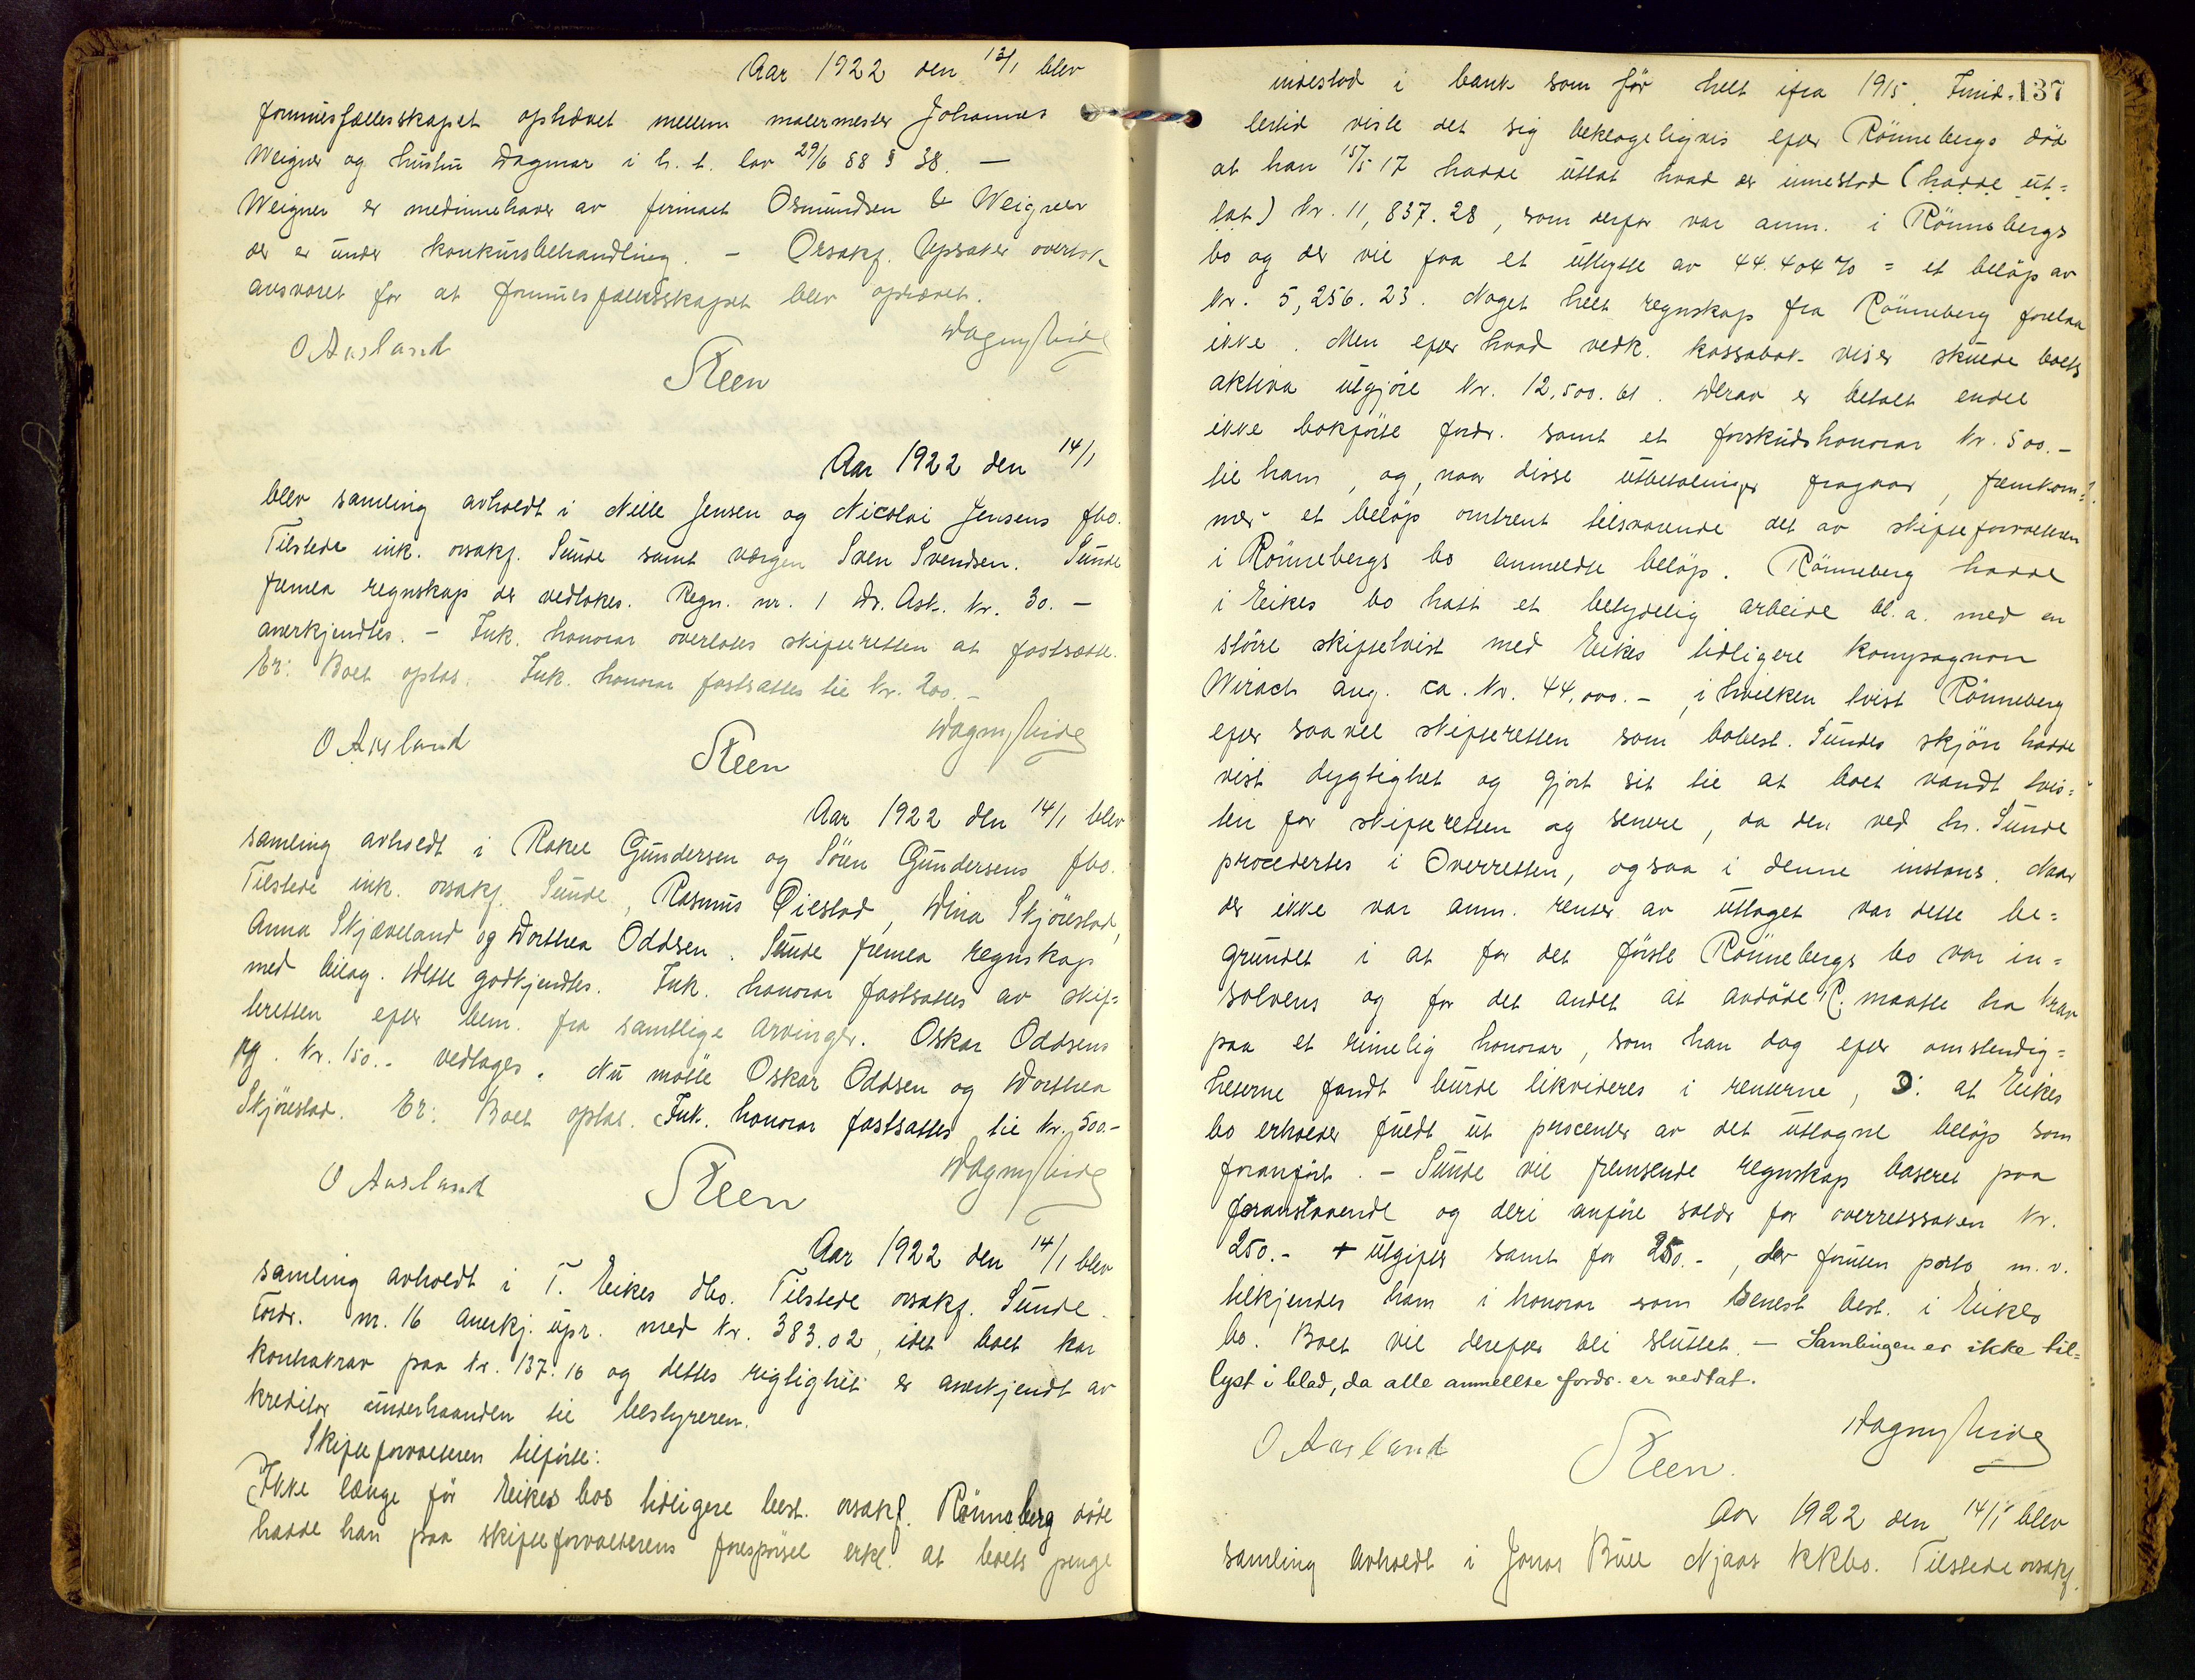 Aar 1922 den 13/1 blev
formuesfællesskapet ophævet mellem malermester Johannes
Weigner og hustru Dagmar i h. t. lov 29/6 88 § 38. —
Weigner er medinnehaver av firmaet Osmundsen & Weigner
der er under konkursbehandling. - Orsakf. Upsaker overtok
ansvaret for at formuesfællesskapet blev ophævet.
O Aasland
Steen
Dagny
Aar 1922 den 14/1
blev samling avholdt i Nille Jensen og Nicolai Jensens fbo.
Tilstede ink. orsakf. Sunde samt værgen Sven Svendsen. Sunde
fremla regnskap der vedtokes. Regn. nr. 1 Dr. Ask. kr. 30. —
anerkjendtes. - Ink. honorar overlotes skifteretten at fastsætte.
Er: Boet optas. Ink. honorar fastsattes til kr. 200. —
O Aasland
Steen
Dagny
Aar 1922 den 14/1 blev
samling avholdt i Rakel Gundersen og Sören Gundersens fbo.
Tilstede ink. orsakf. Sunde, Rasmus Øiestad, Dina Skjörestad,
Anna Skjæveland og Dorthea Oddsen. Sunde fremla regnskap
med bilag. Dette godkjendtes. Ink. honorar fastsattes av skif=
teretten efter bem. fra samtlige arvinger. Oskar Oddsens
rg. kr. 150.- vedtages. Nu mötte Oskar Oddsen og Dorthea
Skjörestad. Er: Boet optas. Ink. honorar fastsattes til kr. 500.-
O Aasland
Steen
Dagny
Aar 1922 den 14/1 blev
samling avholdt i T. Eikes dbo. Tilstede orsakf. Sunde.
Fordr. nr. 16 anerkj. upr. med kr. 383.02, idet boet har
kontrakrav paa kr. 137.16 og dettes rigtighet er anerkjendt av
kreditor underhaanden til bestyreren.
Skifteforvalteren tilförte:
Ikke længe för Eikes bos tidligere best. orsakf. Rönneberg döde
hadde han paa skifteforvalterens forespörsel erkl. at boets penge
137
indestod i bank som för helt ifra 1915. Imid-
lertid viste det sig beklageligvis efter Rönnebergs död
at han 15/5 17 hadde uttat hvad der innestod (hadde ut=
tat) kr. 11,837.28, som derfor var anm. i Rönnebergs
bo og der vil faa et utlytte av 44.404 % = et belöp av
kr. 5,256.23. Noget helt regnskap fra Rönneberg forelaa
ikke. Men efter hvad vedk. kassabok viser skulde boets
aktiva utgjöre kr. 12,500.61. Derav er betalt endel
ikke bokförte fordr. samt et forskudshonorar kr. 500.-
til ham, og, naar disse utbetalinger fragaar, fremkom=
mer et belöp omtrent tilsvarende det av skifteforvalteren
i Rönnebergs bo anmeldte belöp. Rönneberg hadde
i Eikes bo hatt et betydelig arbeide bl. a. med en
större skiftetvist med Eikes tidligere kompagnon
Wirach ang. ca. kr. 44,000.-, i hvilken tvist Rönneberg
efter saavel skifteretten som bobest. Sundes skjön hadde
vist dygtighet og gjort sit til at boet vandt tvis=
ten for skifteretten og senere, da den ved hr. Sunde
procedertes i Overretten, ogsaa i denne instans. Naar
der ikke var anm. renter av uttaget var dette be=
grundet i at for det förste Rönnebergs bo var in=
solvens og for det andet at avdöde R. maatte ha krav
paa et rimelig honorar, som han dog efter omstendig=
heterne fandt burde likvideres i renterne, ɔ: at Eikes
bo erholder fuldt ut procenter av det uttagne belöp som
foranfört. - Sunde vil fremsende regnskap baseret paa
foranstaaende og deri anföre salær for overretssaken kr.
250.- + utgifter samt for 250.-, der foruten porto m. v.
tilkjendes ham i honorar som senest best. i Eikes
bo. Boet vil derefter bli sluttet. — Samlingen er ikke til=
lyst i blad, da alle anmeldte fordr. er vedtat.
O Aasland
Steen.
Dagny
Aar 1922 den 14/1 blev
samling avholdt i Jonas Bull Njaas KKbo. Tilstede orsakf.